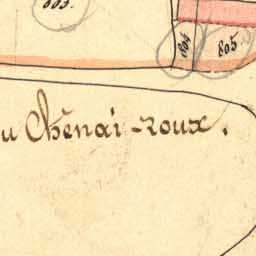 803.
804
805.
u Chênai-roux.